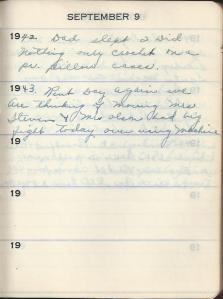 SEPTEMBER 9
1942. Dad slept I did
nothing only crochet on a
pr. pillow cases.
1943. Rent Day again we
are thinking of moving Mrs
Stevens & Mrs Olson had big
fight today over using machine
19
19